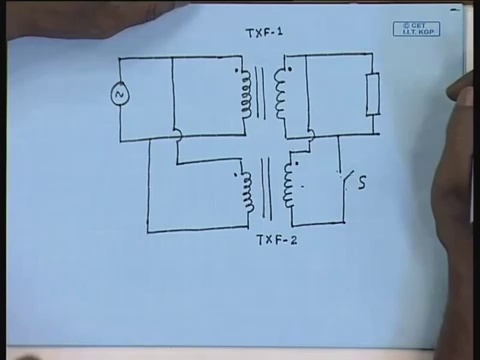 TXF-1
© CET
I.I.T. KGP
~
S
TXF-2